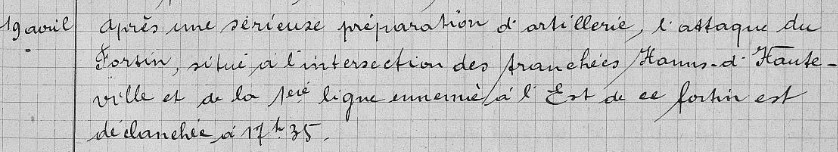 19 avril après une sérieuse préparation d'artillerie, l'attaque du
Fortin, situé à l'intersection des tranchées Hanns-d'Haute-
ville et de la 1ere ligne ennemie à l'Est de ce fortin est
déclanchée à 17h35.